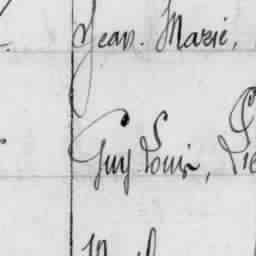 Jean. Marie,
Guy Louis,